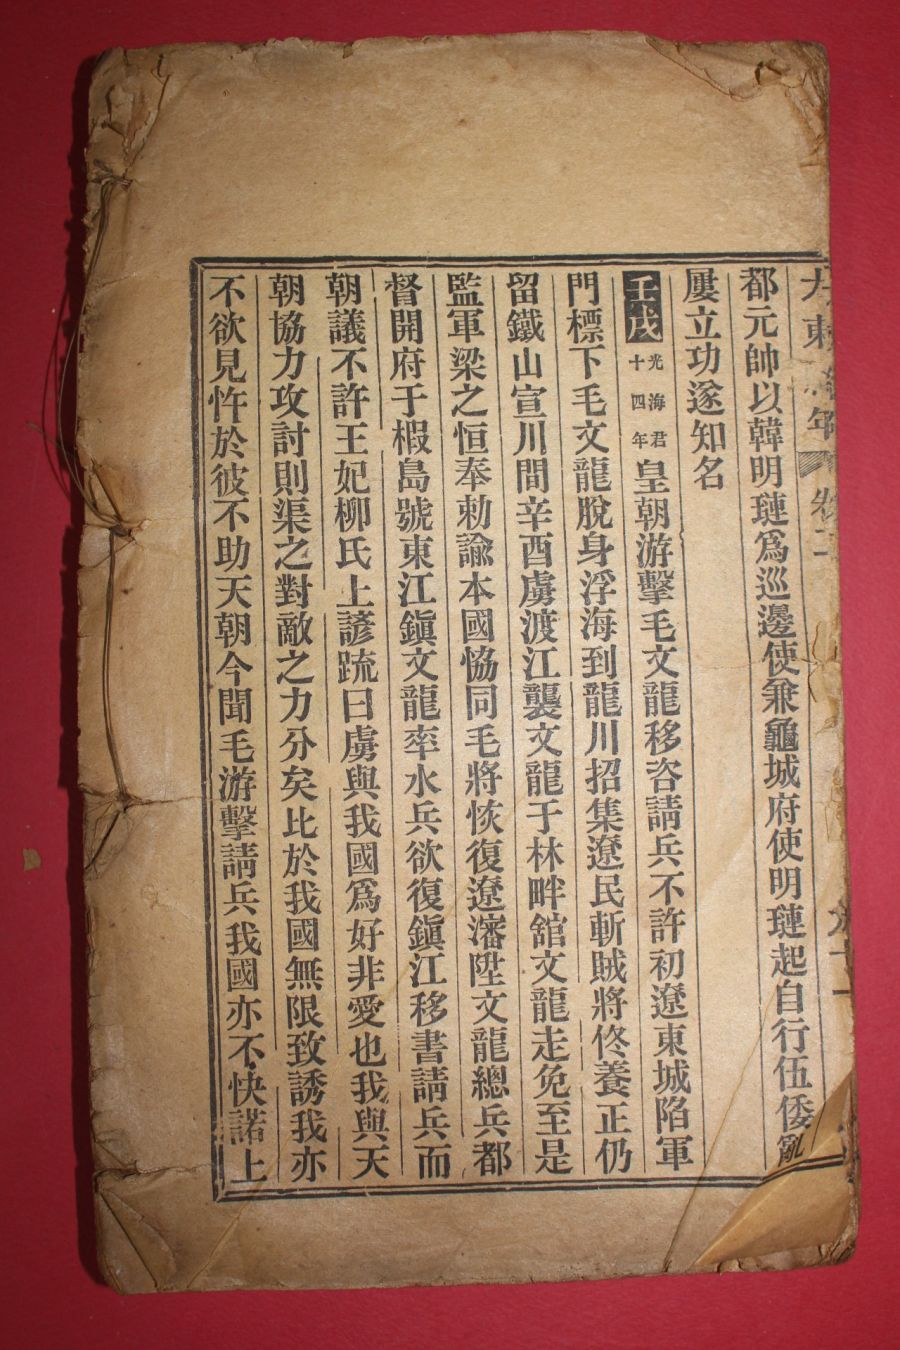 大東紀年 卷二
都元帥以韓明璉爲巡邊使兼龜城府使明璉起自行伍倭亂
屢立功遂知名
壬戌光海君十四年皇朝游擊毛文龍移咨請兵不許初遼東城陷軍
門標下毛文龍脫身浮海到龍川招集遼民斬賊將佟養正仍
留鐵山宣川間辛酉虜渡江襲文龍于林畔舘文龍走免至是
監軍梁之恒奉勅諭本國恊同毛將恢復遼瀋陞文龍總兵都
督開府于椵島號東江鎭文龍率水兵欲復鎭江移書請兵而
朝議不許王妃柳氏上諺䟽曰虜與我國爲好非愛也我與天
朝協力攻討則渠之對敵之力分矣比於我國無限致誘我亦
不欲見忤於彼不助天朝今聞毛游擊請兵我國亦不快諾上